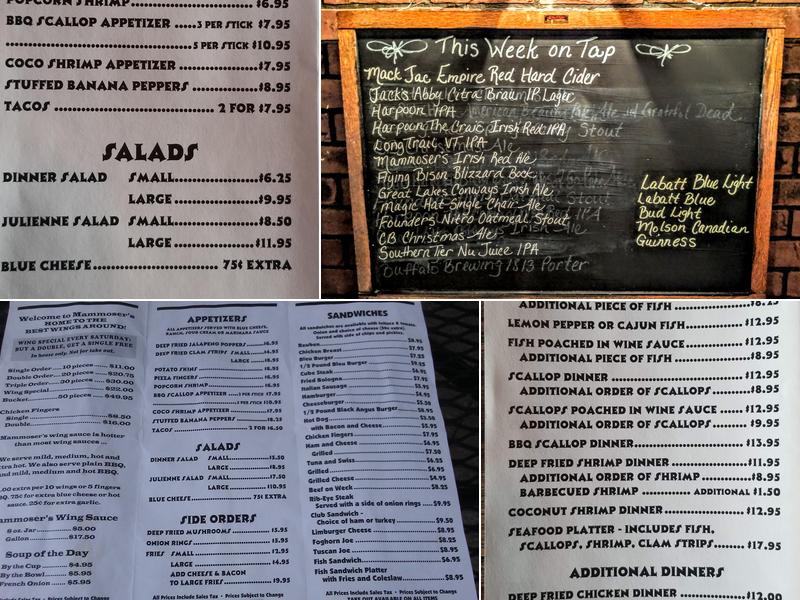 POPCORN SHRIMP $6.95
BBQ SCALLOP APPETIZER .....3 PER STICK $7.95
5 PER STICK $10.95
COCO SHRIMP APPETIZER $7.95
STUFFED BANANA PEPPERS $8.95
TACOS 2 FOR $7.95
SALADS
DINNER SALAD SMALL $6.25
LARGE $9.95
JULIENNE SALAD SMALL $8.50
LARGE $11.95
BLUE CHEESE 75¢ EXTRA
This Week on Tap
Mack Jac Empire Red Hard Cider
Jack's Abby Citra Braun IP Lager
Harpoon IPA
Harpoon The Craic Irish Red IPA
Long Trail VT IPA
Mammoser's Irish Red Ale
Flying Bison Blizzard Bock
Great Lakes Conways Irish Ale
Magic Hat Single Chair Ale
Founders Nitro Oatmeal Stout
CB Christmas Ale
Southern Tier Nu Juice IPA
Buffalo Brewing 1813 Porter
Labatt Blue Light
Labatt Blue
Bud Light
Molson Canadian
Guinness
Welcome to Mammoser's
HOME TO THE
BEST WINGS AROUND!
WING SPECIAL EVERY SATURDAY!
BUY A DOUBLE, GET A SINGLE FREE
In house only. Not for take out.
Single Order 10 pieces $11.00
Double Order 20 pieces $20.75
Triple Order 30 pieces $30.00
Wing Special $22.00
Bucket 50 pieces $49.95
Chicken Fingers
Single $8.50
Double $16.00
Mammoser's wing sauce is hotter
than most wing sauces ...
We serve mild, medium, hot and
extra hot. We also serve plain BBQ,
and mild, medium and hot BBQ.
extra per 10 wings or 5 fingers
BBQ. 75¢ for extra blue cheese or hot
sauce. 25¢ for extra garlic.
Mammoser's Wing Sauce
8 oz. Jar $5.00
Gallon $17.50
Soup of the Day
By the Cup $4.95
By the Bowl $5.95
French Onion $5.95
APPETIZERS
ALL APPETIZERS SERVED WITH BLUE CHEESE,
RANCH, SOUR CREAM OR MARINARA SAUCE
DEEP FRIED JALAPENO POPPERS $6.95
DEEP FRIED CLAM STRIPS SMALL $4.95
LARGE $8.95
POTATO SKINS $6.95
PIZZA FINGERS $6.95
POPCORN SHRIMP $6.95
BBQ SCALLOP APPETIZER 3 PER STICK $7.95
5 PER STICK $10.95
COCO SHRIMP APPETIZER $7.95
STUFFED BANANA PEPPERS $8.25
TACOS 2 FOR $6.50
SALADS
DINNER SALAD SMALL $5.50
LARGE $8.95
JULIENNE SALAD SMALL $7.50
LARGE $10.95
BLUE CHEESE 75¢ EXTRA
SIDE ORDERS
DEEP FRIED MUSHROOMS $5.95
ONION RINGS $3.95
FRIES SMALL $2.95
LARGE $4.95
ADD CHEESE & BACON
TO LARGE FRIES $9.95
All Prices Include Sales Tax • Prices Subject to Change
SANDWICHES
All sandwiches are available with lettuce & tomato.
Onion and choice of cheese (50¢ extra).
Served with side of chips and pickles.
Reuben $8.95
Chicken Breast $7.95
Bleu Burger $7.25
1/2 Pound Bleu Burger $9.25
Cube Steak $6.95
Fried Bologna $5.95
Italian Sausage $5.95
Hamburger $4.95
Cheeseburger $5.50
1/2 Pound Black Angus Burger $8.95
Hot Dog $3.50
with Bacon and Cheese $5.95
Chicken Fingers $7.95
Ham and Cheese $6.95
Grilled $7.50
Tuna and Swiss $6.25
Grilled $6.95
Grilled Cheese $4.95
Beef on Weck $8.25
Rib-Eye Steak
Served with a side of onion rings $9.95
Club Sandwich -
Choice of ham or turkey $9.50
Limburger Cheese $8.95
Foghorn Joe $8.25
Tuscan Joe $8.95
Fish Sandwich $6.95
Fish Sandwich Platter
with Fries and Coleslaw $8.95
All Prices Include Sales Tax • Prices Subject to Change
TAKE OUT AVAILABLE ON ALL ITEMS
ADDITIONAL PIECE OF FISH $8.25
LEMON PEPPER OR CAJUN FISH $12.95
FISH POACHED IN WINE SAUCE $12.95
ADDITIONAL PIECE OF FISH $8.95
SCALLOP DINNER $12.95
ADDITIONAL ORDER OF SCALLOPS $8.95
SCALLOPS POACHED IN WINE SAUCE $12.95
ADDITIONAL ORDER OF SCALLOPS $9.95
BBQ SCALLOP DINNER $13.95
DEEP FRIED SHRIMP DINNER $11.95
ADDITIONAL ORDER OF SHRIMP $8.95
BARBECUED SHRIMP ADDITIONAL $1.50
COCONUT SHRIMP DINNER $12.95
SEAFOOD PLATTER - INCLUDES FISH,
SCALLOPS, SHRIMP, CLAM STRIPS $17.95
ADDITIONAL DINNERS
DEEP FRIED CHICKEN DINNER $12.00